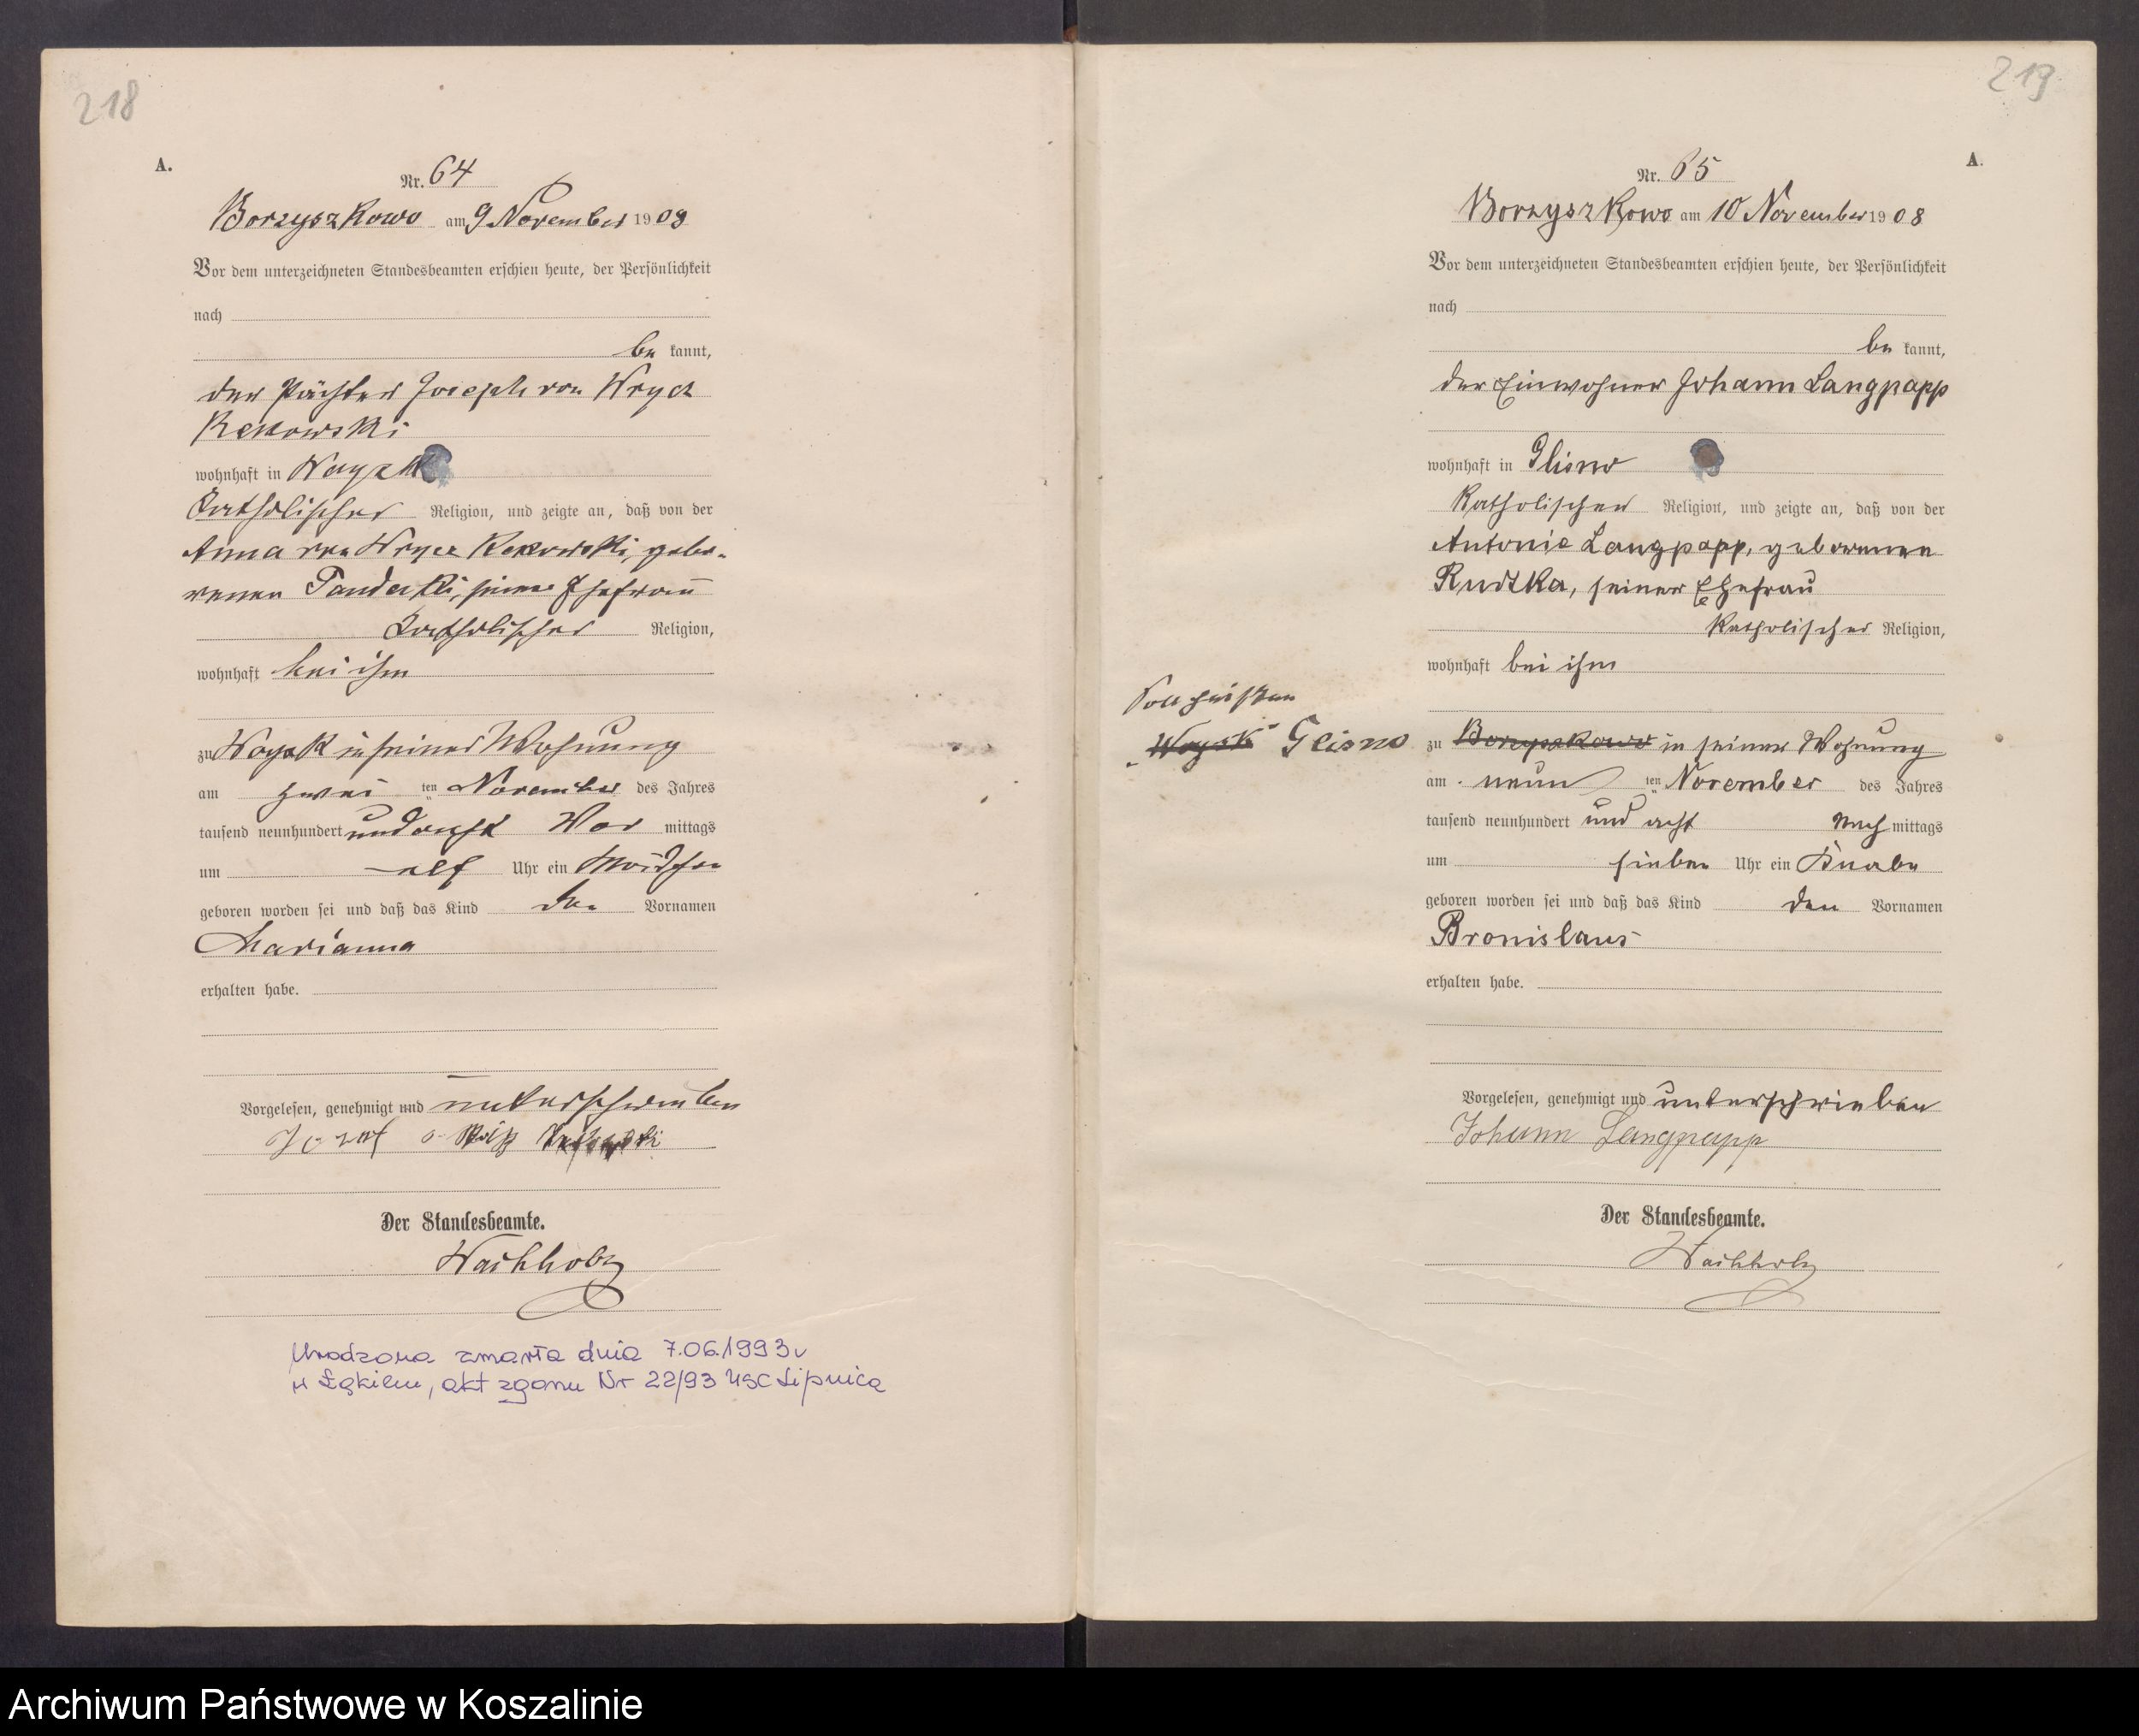 218
A.
Nr. 64
Borzyszkowo am 9 November 1908
Vor dem unterzeichneten Standesbeamten erschien heute, der Persönlichkeit
nach
be kannt,
der Pächter Joseph von Wrycz
Rekowski
wohnhaft in Woysk
katholischer Religion, und zeigte an, daß von der
Anna von Wrycz Rekowski, gebo-
renen seiner Ehefrau
katholischer Religion,
wohnhaft bei ihm
zu Woysk in seiner Wohnung
am zwei ten November des Jahres
tausend neunhundert und acht Vor mittags
um elf Uhr ein Mädchen
geboren worden sei und daß das Kind den Vornamen
Marianna
erhalten habe.
Vorgelesen, genehmigt und unterschrieben
Jozef v.
Der Standesbeamte.
Wachholz
Urodzona zmarła dnia 7.06.1993 r
w Łąkiem, akt zgonu Nr 22/93 USC Lipnica
219
A.
Nr. 65
Borzyszkowo am 10 November 1908
Vor dem unterzeichneten Standesbeamten erschien heute, der Persönlichkeit
nach
be kannt,
der Einwohner Johann Langpapp
wohnhaft in Glisno
katholischer Religion, und zeigte an, daß von der
Antonie Langpapp, geborenen
Rudtka, seiner Ehefrau
katholischer Religion,
wohnhaft bei ihm
Soll heißen
"Woysk" Glisno
zu Borzyszkowo in seiner Wohnung
am neun ten November des Jahres
tausend neunhundert und acht Nach mittags
um sieben Uhr ein Knabe
geboren worden sei und daß das Kind den Vornamen
Bronislaus
erhalten habe.
Vorgelesen, genehmigt und unterschrieben
Johann Langpapp
Der Standesbeamte.
Wachholz
Archiwum Państwowe w Koszalinie